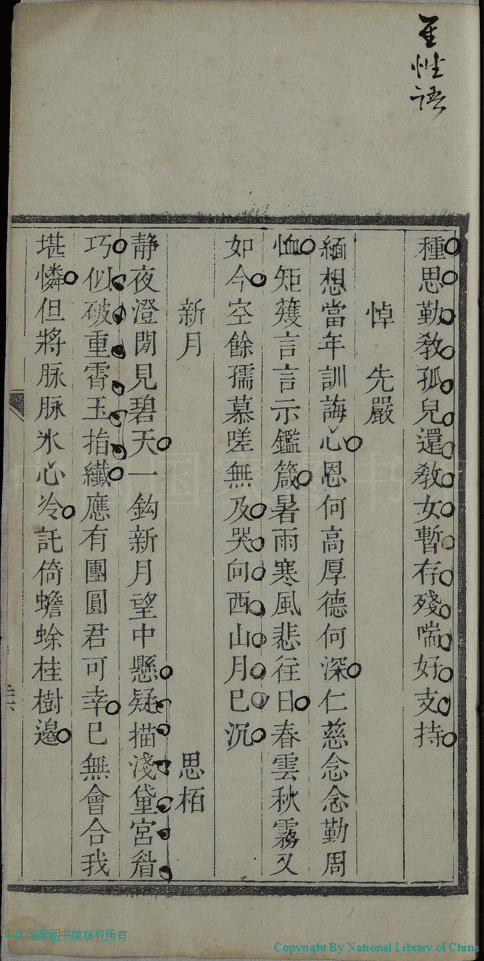 至性語
種思勤敎孤兒還敎女暫存殘喘好支持
悼　先嚴
緬想當年訓誨心恩何高厚德何深仁慈念念勤周
恤矩矱言言示鑑箴暑雨寒風悲往日春雲秋霧又
如今空餘孺慕嗟無及哭向西山月已沉
新月　思栢
靜夜澄開見碧天一鈎新月望中懸疑描淺黛宮眉
巧似破重霄玉指纖應有團圓君可幸已無會合我
堪憐但將脉脉氷心冷託倚蟾蜍桂樹邊
中国国家图书馆版权所有
Copyright By National Library of China